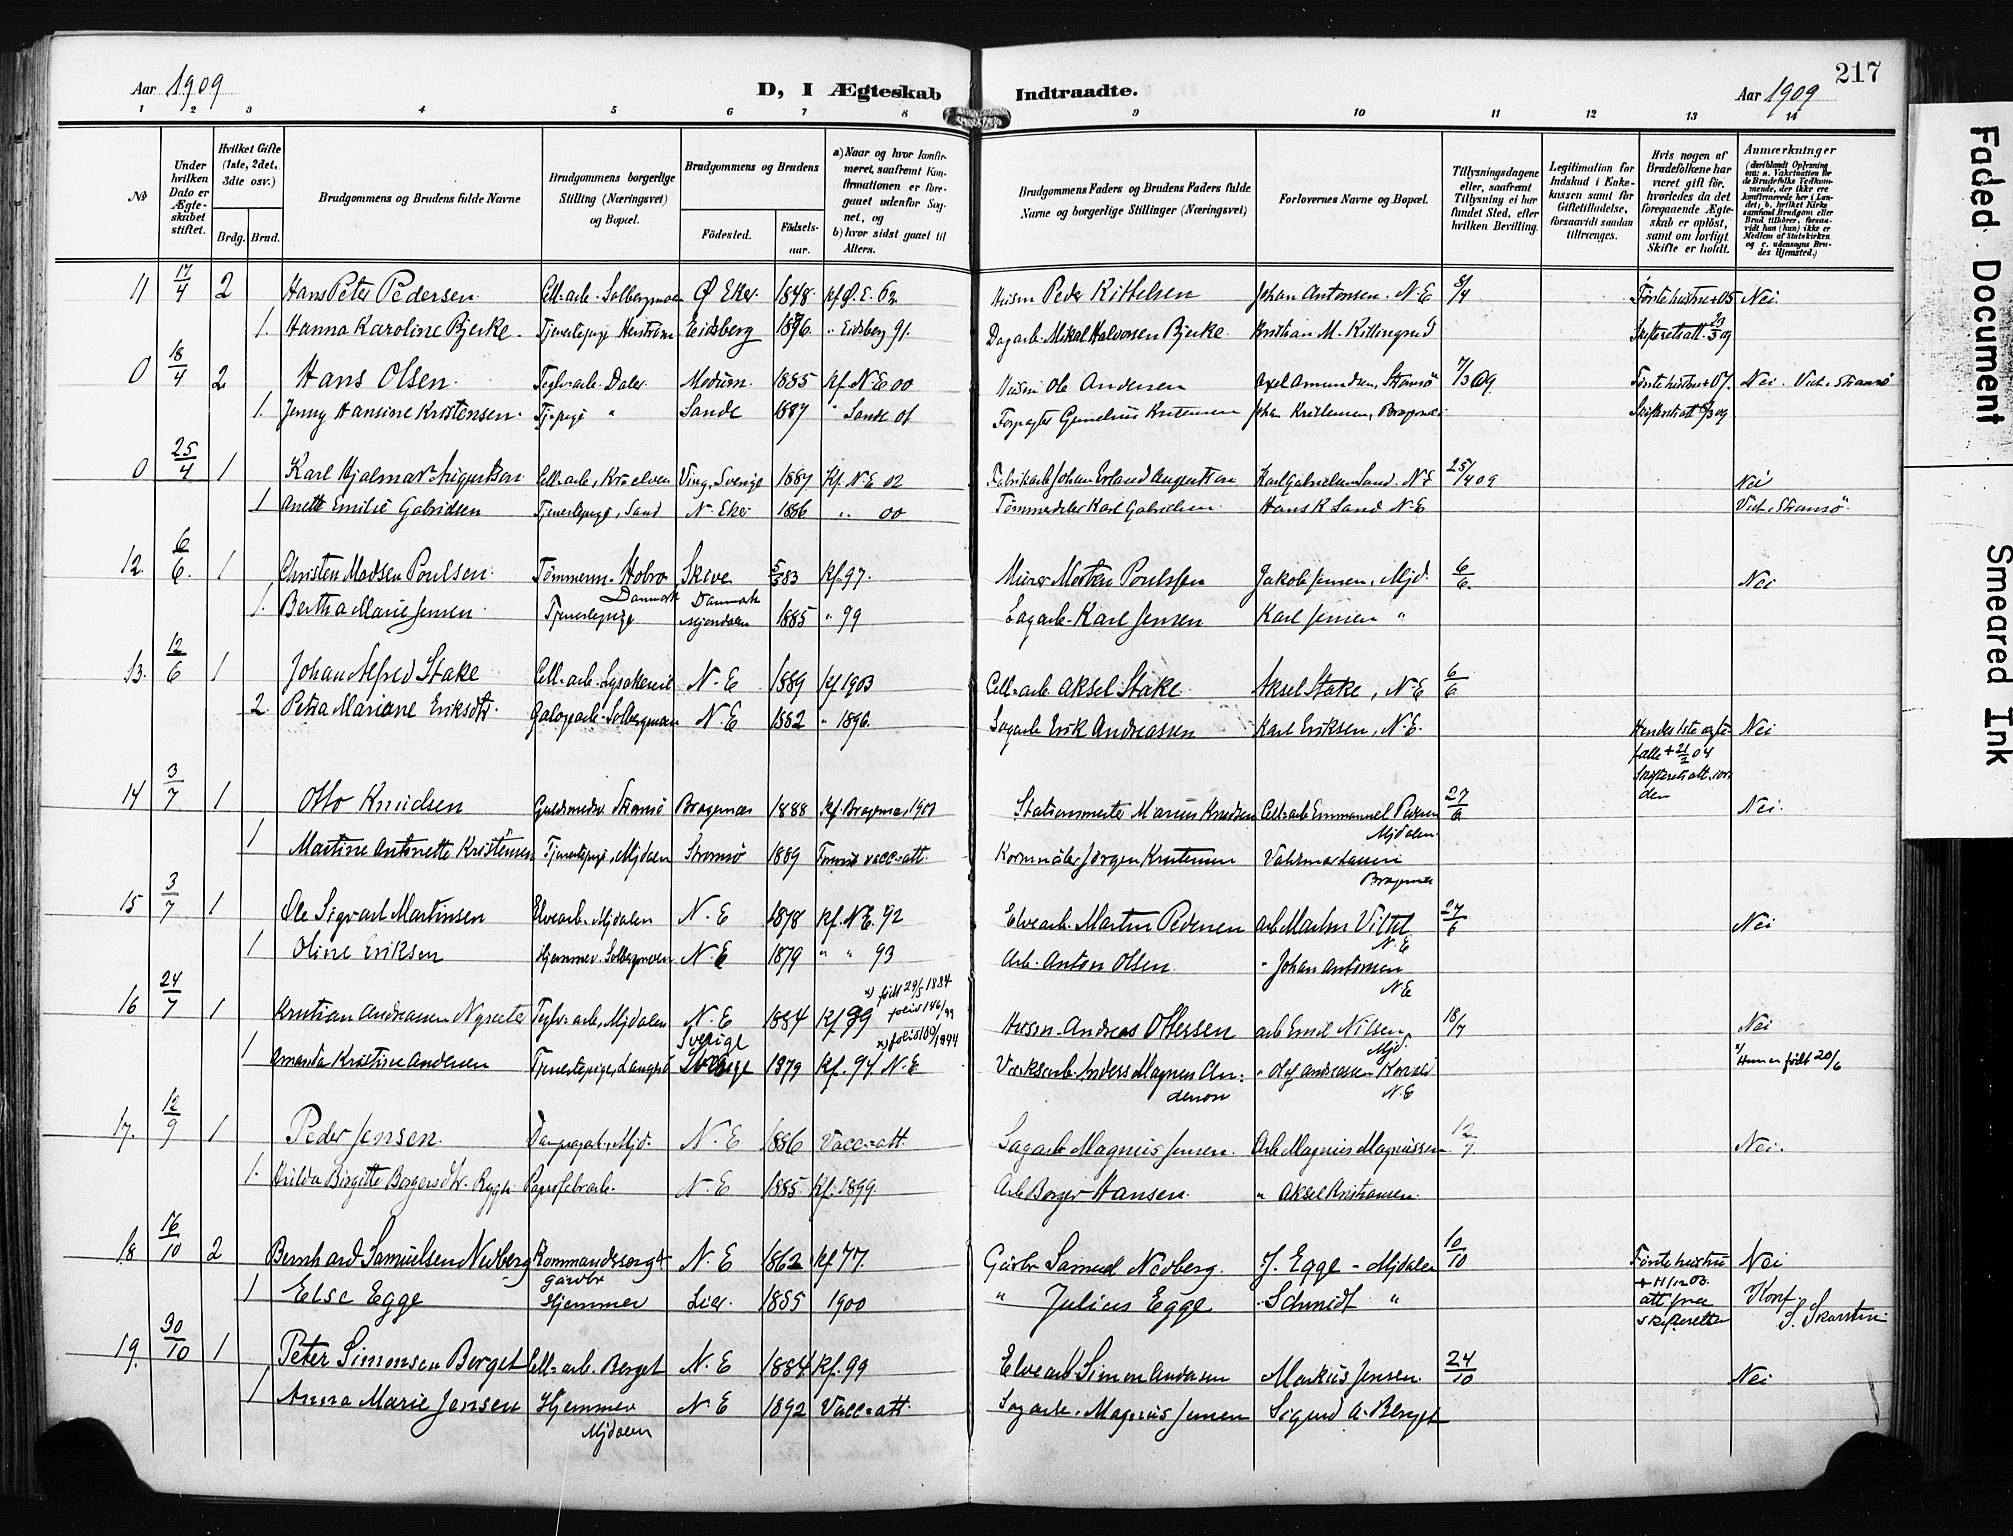 217
Aar 1909
D, I Ægteskab Indtraadte.
Aar 1909
1 2 3 4 5 6 7 8 9 10 11 12 13 14
No
Under hvilken Dato er Ægteskabet stiftet.
Hvilket Gifte (1ste, 2det, 3die osv.)
Brdg. Brud.
Brudgommens og Brudens fulde Navne
Brudgommens borgerlige Stilling (Næringsvei) og Bopæl.
Brudgommens og Brudens
Fødested.
Fødselsaar.
a) Naar og hvor konfirmeret, saafremt Konfirmationen er foregaaet udenfor Sognet, og
b) hvor sidst gaaet til Alters.
Brudgommens Faders og Brudens Faders fulde Navne og borgerlige Stillinger (Næringsvei)
Forlovernes Navne og Bopæl.
Tillysningsdagene eller, saafremt Tillysning ei har fundet Sted, efter hvilken Bevilling.
Legitimation for Indskud i Enkekassen samt for Giftetilladelse, forsaavidt saadan tiltrænges.
Hvis nogen af Brudefolkene har været gift før, hvorledes da det foregaaende Ægteskab er opløst, samt om lovligt Skifte er holdt.
Anmærkninger
11 17/4 2 Hans Peter Pedersen Cell-arb. Solbergmoen Ø Eker 1848 Kf. Ø.E. 62 Husm Peder Kittelsen Johan Antonsen. N.E 5/4 Første hustru + 05 Nei
1. Hanna Karoline Bjerke Tjenestepige Eidsberg 1876 " Eidsberg 91. Dagarb. Mikal Halvorsen Bjerke Kristian M. Killingrud Skifteretsatt. 23/3 09
0 18/4 2 Hans Olsen Teglv-arb. Daler Modum 1885 Kf. N.E 00 Husm Ole Andersen Axel Amundsen, Strømsø 7/3 09 Første hustru + 07. Nei. Viet i Strømsø
1. Jenny Hansine Kristensen Tj-pige " Sande 1887 " Sande 01 Forpagter Gunelius Kristensen Johan Kristensen, Bragernæs
0 25/4 1 Karl Hjalmar Augustson Cell-arb, Kroelven Ving, Sverige 1887 Kf. N.E 02 Fabrikarb Johan Erland Augustson Karl Gabrielsen Sand. N.E 25/4 09 Nei
1 Anette Emilie Gabrielsen Tjenestepige, Sand N. Eker 1886 " 00 Tømmerdeler Karl Gabrielsen Hans K Sand N.E Viet i Strømsø
12. 6/6. 1 Christen Madsen Poulsen Tømmerm. Hobro Danmark Skive Danmark 5/3 83 Kf. 97. Murer Morten Poulsen Jakob Jensen, Mjd. 6/6. Nei
1. Bertha Marie Jensen Tjenestepige Mjøndalen 1885 " 99 Sagarb. Karl Jensen Karl Jensen "
13. 12/6 1 Johan Alfred Stake Cell-arb. N.E 1889 Kf 1903 Cell-arb Aksel Stake Aksel Stake, N.E 6/6
2. Petra Mariane Eriksdtr. Solbergmoen N.E 1882 " 1896. Sagarb Erik Andreassen Karl Eriksen, N.E. Hendes 1ste ægtefælle + 21/2 04 Nei
14 3/7 1 Otto Knudsen Guldsmedsv Strømsø Bragernæs 1888 Kf. Bragernæs 1903 Stationsmester Marius Knudsen Cell-arb Emmanuel Pedersen Mjdalen 27/6 Nei.
1 Martine Antonette Kristensen Tjenestepige, Mjdalen Strømsø 1889 vacc-att. Kornmåler Jørgen Kristensen Valdemar Larsen Bragernæs
15 3/7 1 Ole Sigvart Martinsen Elvearb. Mjdalen N.E 1878 Kf. N.E. 92 Elvearb. Martin Pedersen arb Martin Viltel N.E 27/6 Nei
1 Oline Eriksen Hjemmev. Solbergmoen N.E 1879 " " 93 Arb. Anton Olsen " Johan Antonsen N.E
x) født 29/5 1884 folio 146/99
16 24/7 1 Kristian Andreassen Nyseter Teglv-arb, Mjdalen N.E 1884 Kf 99 Husm. Andreas Ottersen arb Emil Nilsen, Mjd. 18/7 Nei
x) folio 180/1894
1 Amanda Kristine Andersen Tjenestepige, Sverige 1879 Kf. 94. N.E Værksarb Anders Magnus Anderson " Olaf Andreassen N.E x) Hun er født 20/6
17. 12/9 1 Peder Jensen Mjd. N.E 1886 Vacc-att. Sagarb Magnus Jensen Arb Magnus Magnussen 12/9 Nei.
1. Hilda Birgitte Borgersdtr. Rygh Papirfabarb. N.E 1885 Kf. 1899. Arb Borger Hansen " Aksel Kristiansen
18 16/10 2 Bernhard Samuelsen Nedberg Kommandersergt. gårdbr N.E 1862 Kf 77. Gårdbr Samuel Nedberg J. Egge - Mjdalen 10/10 Første hustru + 11/12 03. att fra skifteretten Nei
1 Else Egge Hjemmev Lier 1885 1900 " Julius Egge Schmidt " Konf. S. Skarstin
19. 30/10 1 Peter Simonsen Berget Cell-arb. Berget N.E 1884 Kf. 99 Elvearb Simon Andersen Markus Jensen 24/10 Nei
1 Anna Marie Jensen Hjemmev Mjdalen N.E 1892 Vacc-att. Sagarb. Magnus Jensen Sigurd A. Berget
Faded Document
Smeared Ink